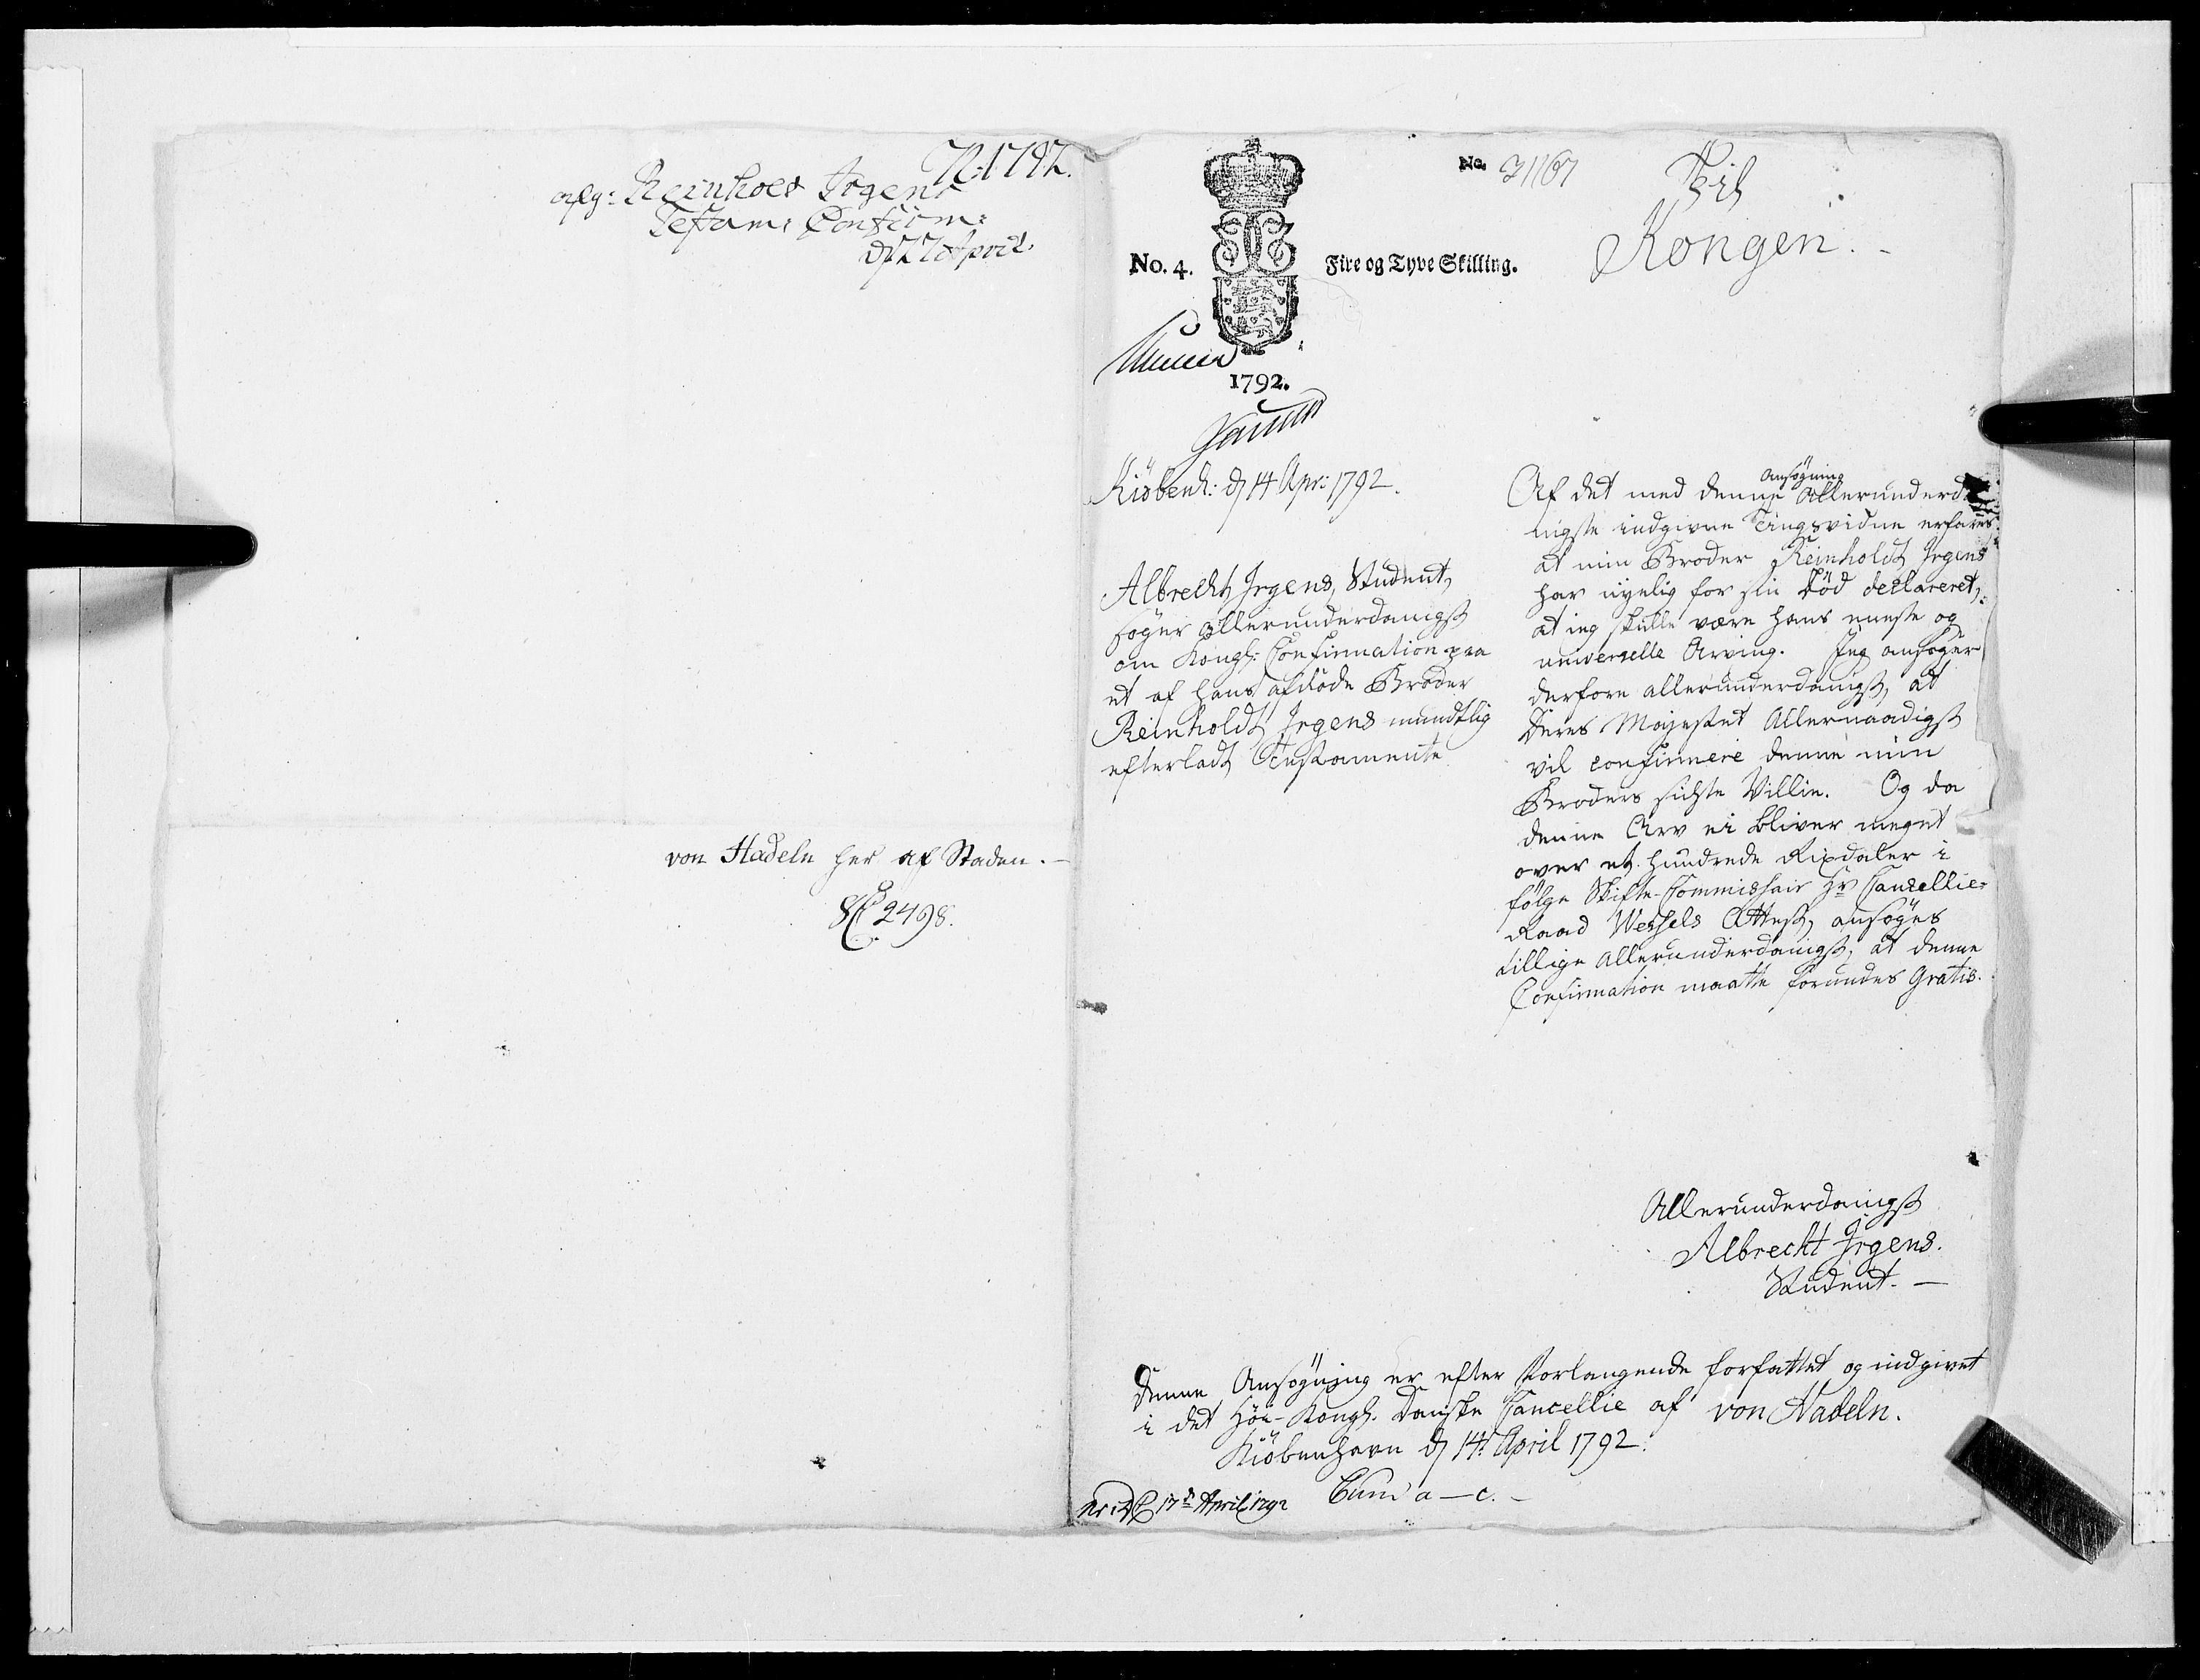 1792.
afg: Reinholt Irgens
Testam: Confirm:
d 27 April.
von Hadeln her af Staden.
2498.
No. 31167
Til
Kongen.
No. 4.
Fire og Tyve Skilling.
1792.
Kiøbenh: d 14 Apr: 1792.
Albrecht Irgens, Student,
søger allerunderdanigst
om Kongl: Confirmation paa
et af hans afdøde Broder
Reinholdt Irgens mundtlig
efterladt Testamente
Af det med denne Ansøgning Allerunderda-
nigste indgivne Tingsvidne erfares
at min Broder Reinholdt Irgens
har nyelig for sin Død declareret,
at jeg skulle være hans eneste og
universelle Arving. Jeg ansøger
derfore allerunderdanigst, at
Deres Majestet Allernaadigst
vil confirmere denne min
Broders sidste Villie. Og da
denne Arv ei bliver meget
over et hundrede Rixdaler i
følge Skifte-Commissair Hr Cancellie-
Raad Wessels Attest, ansøges
tillige allerunderdanigst, at denne
Confirmation maatte forundes Gratis.
Allerunderdanigst
Albrecht Irgens.
Student.
Denne Ansøgning er efter Forlangende forfattet og indgivet
i det Høi-Kongl. Danske Cancellie af von Hadeln.
Kiøbenhavn d 14 April 1792.
17de April 1792 Cum a-c.